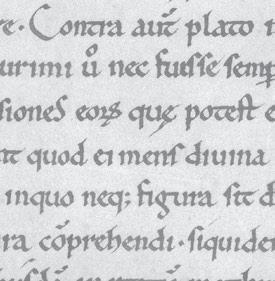 re · Contra aut̃ plato
urimi ů nec fuisse semp̱
siones eorꝝ quę potest e
it quod ei mens diuina
inquo neqꝫ figura sit d
ra cõprehendi · siquidem